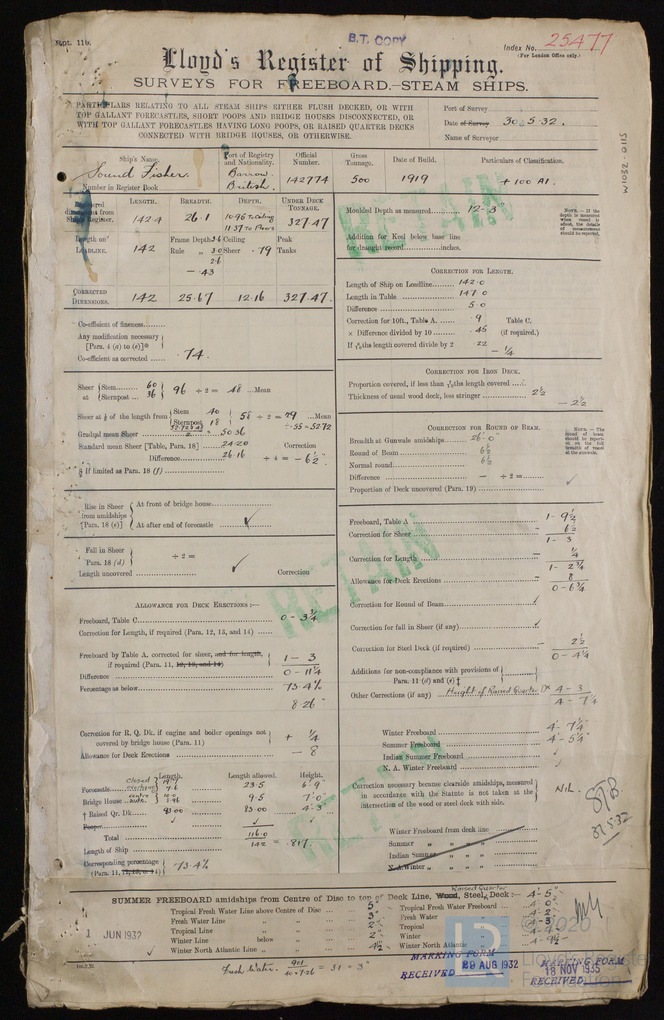 Rpt. 11b.
B.T. COPY
Index No. 25477
(For London Office only.)
Lloyd's Register of Shipping.
SURVEYS FOR FREEBOARD.—STEAM SHIPS.
PARTICULARS RELATING TO ALL STEAM SHIPS EITHER FLUSH DECKED, OR WITH
TOP GALLANT FORECASTLES, SHORT POOPS AND BRIDGE HOUSES DISCONNECTED, OR
WITH TOP GALLANT FORECASTLES HAVING LONG POOPS, OR RAISED QUARTER DECKS
CONNECTED WITH BRIDGE HOUSES, OR OTHERWISE.
Port of Survey
Date of Survey 30.5.32.
Name of Surveyor
W1032-0115
Ship's Name. Port of Registry and Nationality. Official Number. Gross Tonnage. Date of Build. Particulars of Classification.
Sound Fisher. Barrow. British. 142774 500 1919 +100 A1.
Number in Register Book
RETAIN
LENGTH. BREADTH. DEPTH. UNDER DECK TONNAGE.
Register. 142.4 26.1 10.96 To Ceiling 11.37 to Floors 327.47
Length on LOADLINE. 142 Frame Depth 3.6 Ceiling Peak
Rule 3.0 Sheer .79 Tanks
2.6
— .43
CORRECTED DIMENSIONS. 142 25.67 12.16 327.47.
Moulded Depth as measured 12-3"
Addition for Keel below base line
for draught record inches.
NOTE.—If the depth is measured when vessel is afloat, the details of measurement should be reported.
CORRECTION FOR LENGTH.
Length of Ship on Loadline 142.0
Length in Table 147.0
Difference 5.0
Correction for 10ft., Table A. .9 Table C.
× Difference divided by 10 .45 (if required.)
If 6/10ths length covered divide by 2 22
— 1/4
Co-efficient of fineness
Any modification necessary
[Para. 4 (a) to (e)]
Co-efficient as corrected .74.
CORRECTION FOR IRON DECK.
Proportion covered, if less than 7/10ths length covered
Thickness of usual wood deck, less stringer 2 1/2
— 2 1/2
Sheer at { Stem 60 Sternpost 36 } 96 ÷ 2 = 48 Mean
Sheer at 1/8 of the length from { Stem 40 Sternpost 18 } 58 ÷ 2 = 29 Mean
÷ .55 = 52.72
Gradual mean Sheer 50.36
Standard mean Sheer [Table, Para. 18] 24.20 Correction
Difference 26.16 ÷ 4 = — 6 1/2"
§ If limited as Para. 18 (f)
CORRECTION FOR ROUND OF BEAM.
Breadth at Gunwale amidships 26-0"
Round of Beam 6 1/2
Normal round 6 1/2
Difference — ÷ 2 =
Proportion of Deck uncovered (Para. 19)
NOTE.—The round of beam should be reported on the full breadth of vessel at the gunwale.
Rise in Sheer from amidships [Para. 18 (e)]
At front of bridge house
At after end of forecastle ✓
Fall in Sheer Para. 18 (d) ÷ 2 =
Length uncovered ✓ Correction
RETAIN
Freeboard, Table A 1 - 9 1/2
Correction for Sheer — 6 1/2
1 - 3
Correction for Length — 1/4
1 - 2 3/4
Allowance for Deck Erections — 8
0 - 6 3/4
Correction for Round of Beam ✓
Correction for fall in Sheer (if any) ✓
Correction for Steel Deck (if required) — 2 1/2
0 - 4 1/4
Additions for non-compliance with provisions of
Para. 11 (d) and (e) †
Other Corrections (if any) Height of Raised Quarter Dk 4 - 3
4 - 7 1/4
ALLOWANCE FOR DECK ERECTIONS:—
Freeboard, Table C 0 - 3 3/4
Correction for Length, if required (Para. 12, 13, and 14)
Freeboard by Table A. corrected for sheer, and for length,
if required (Para. 11, 12, 13, and 14) 1 - 3
Difference 0 - 11 1/4
Percentage as below 73.4%
8.26"
Correction for R. Q. Dk. if engine and boiler openings not
covered by bridge house (Para. 11) + 1/4
Allowance for Deck Erections — 8
Length. Length allowed. Height.
Forecastle closed 23.5 6'-9"
Bridge House 9.5 7'-0"
† Raised Qr. Dk. 83.00 83.00 4'-3"
Poop ✓ ✓ ✓
Total 116.0
Length of Ship 142 = .817
Corresponding percentage
(Para. 11, 12, 13, or 14) 73.4%
Winter Freeboard 4 - 7 1/4"
Summer Freeboard 4 - 5 1/4"
Indian Summer Freeboard ✓
N. A. Winter Freeboard ✓
RETAIN
Correction necessary because clearside amidships, measured
in accordance with the Statute is not taken at the
intersection of the wood or steel deck with side.
Nil.
31.5.32
Winter Freeboard from deck line
Summer " " " "
Indian Summer " " " "
N. A. Winter " " " "
SUMMER FREEBOARD amidships from Centre of Disc to top of Deck Line, Wood, Steel, Raised Quarter Deck:— 4 - 5"
Tropical Fresh Water Line above Centre of Disc 5" Tropical Fresh Water Freeboard 4 - 0"
Fresh Water Line " " 3" Fresh Water " 4 - 2"
Tropical Line " " 2" Tropical " 4 - 3"
Winter Line below " 2" Winter "
Winter North Atlantic Line " " 4 1/2" Winter North Atlantic " 4 - 9 1/2"
1 JUN 1932
Fresh Water.
MARKING FORM
RECEIVED 29 AUG 1932
MARKING FORM
18 NOV 1935
RECEIVED
© 2020
Lloyd's Register
Foundation